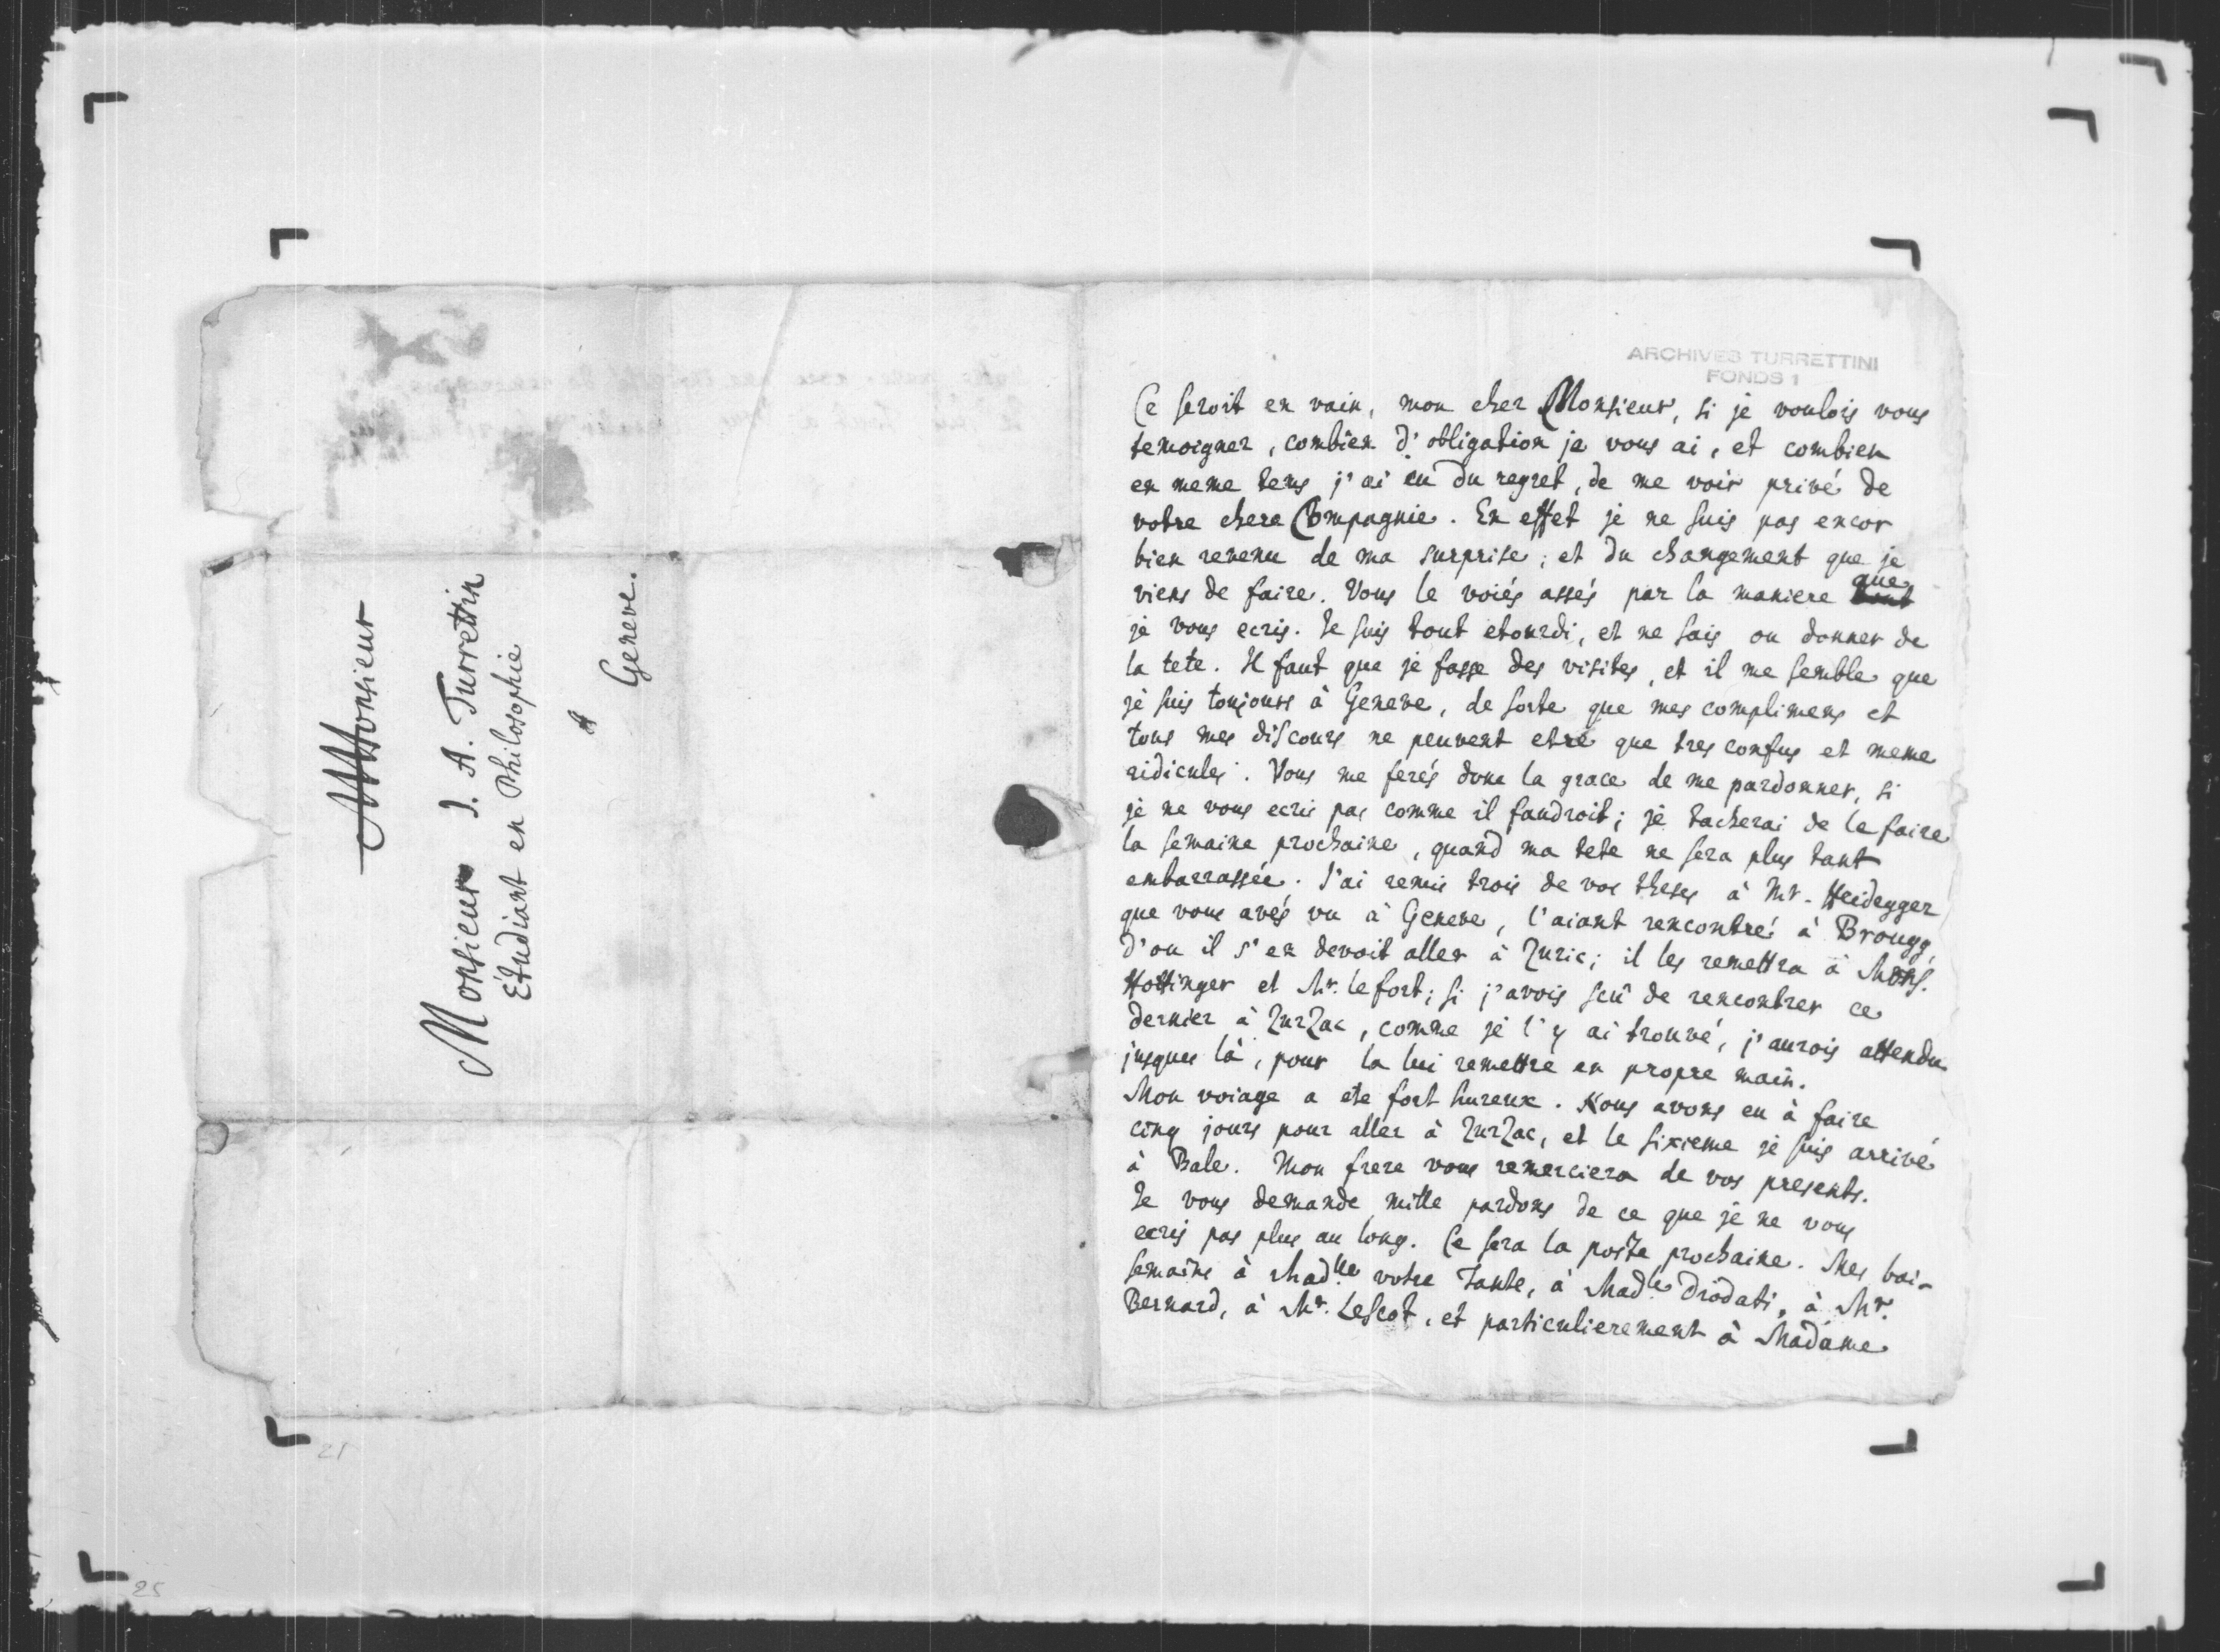 A Monsieur
Monsieur J. A. Turrettin
Etudiant en Philosophie
A
Geneve.
ARCHIVES TURRETTINI
FONDS 1
Ce seroit en vain, mon cher Monsieur, si je voulois vous
temoigner, combien d'obligation je vous ai, et combien
en meme tems j'ai eu du regret, de me voir privé de
votre chere Compagnie. En effet je ne suis pas encor
bien revenu de ma surprise, et du changement que je
viens de faire. Vous le voiés assés par la maniere que
je vous ecris. Je suis tout etourdi, et ne sais ou donner de
la tete. Il faut que je fasse des visites, et il me semble que
je suis toujours à Geneve, de sorte que mes complimens et
tous mes discours ne peuvent etre que tres confus et meme
ridicules. Vous me ferés donc la grace de me pardonner, si
je ne vous ecris pas comme il faudroit; je tacherai de le faire
la semaine prochaine, quand ma tete ne sera plus tant
embarrassée. J'ai remis trois de vos theses à Mr. Heidegger
que vous avés vu à Geneve, l'aiant rencontré à Brougg,
d'ou il s'en devoit aller à Zuric; il les remettra à Mons.
Hottinger et Mr. Lefort; si j'avois seu de rencontrer ce
dernier à Zurzac, comme je l'y ai trouvé, j'aurois attendu
jusques là, pour la lui remettre en propre main.
Mon voiage a ete fort hureux. Nous avons eu à faire
cinq jours pour aller à Zurzac, et le sixieme je suis arrivé
à Bale. Mon frere vous remerciera de vos presents.
Je vous demande mille pardons de ce que je ne vous
ecris pas plus au long. Ce sera la poste prochaine. Mes bai-
semains à Madlle votre Tante, à Madle Diodati, à Mr.
Bernard, à Mr. Lescot, et particulierement à Madame
21
25